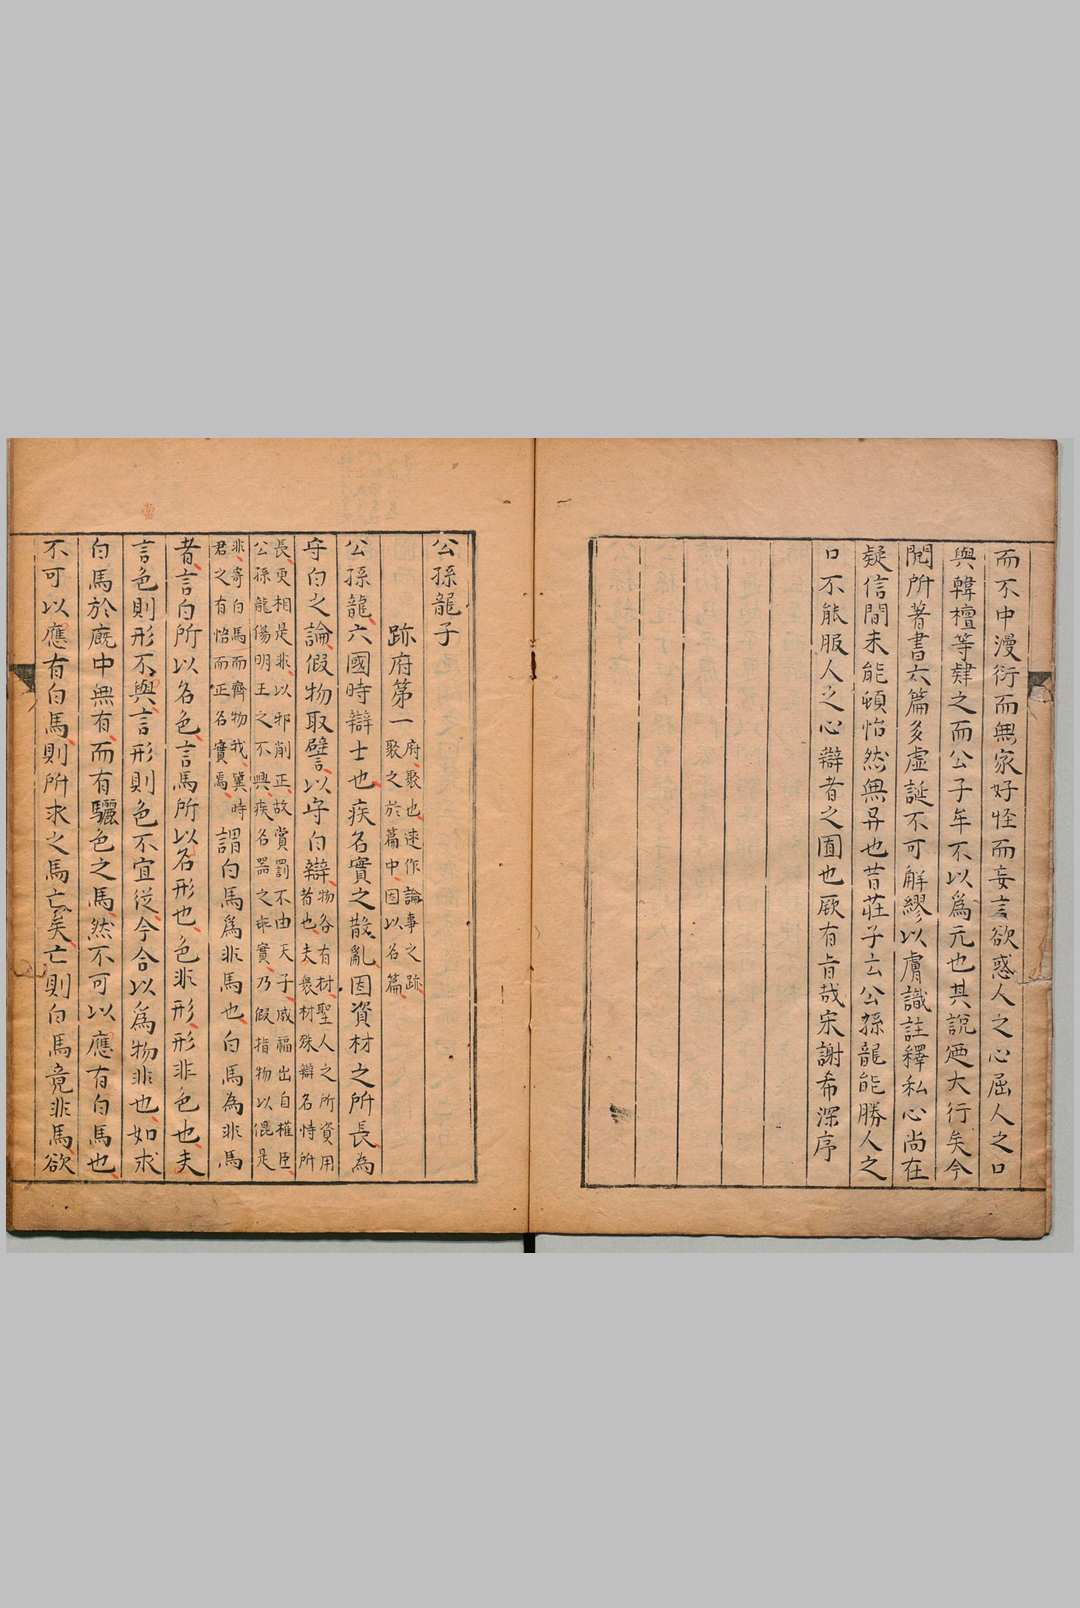 而不中漫衍而無家好怪而妄言欲惑人之心屈人之口
與韓檀等肄之而公子牟不以為尤也其說迺大行矣今
閱所著書六篇多虛誕不可解繆以膚識註釋私心尚在
疑信間未能頓怡然無异也昔莊子云公孫龍能勝人之
口不能服人之心辯者之囿也厥有旨哉宋謝希深序
公孫龍子
跡府第一
府聚也述作論事之跡
聚之於篇中因以名篇
公孫龍六國時辯士也疾名實之散亂因資材之所長為
守白之論假物取譬以守白辯
物各有材聖人之所資用
者也夫衆材殊辯名恃所
長更相是非以邪削正故賞罰不由天子威福出自權臣
公孫龍傷明王之不興疾名器之乖實乃假指物以混是
非寄白馬而齊物我冀時
君之有悟而正名實焉
謂白馬為非馬也白馬為非馬
者言白所以名色言馬所以名形也色非形形非色也夫
言色則形不與言形則色不宜從今合以為物非也如求
白馬於廐中無有而有驪色之馬然不可以應有白馬也
不可以應有白馬則所求之馬亡矣亡則白馬竟非馬欲